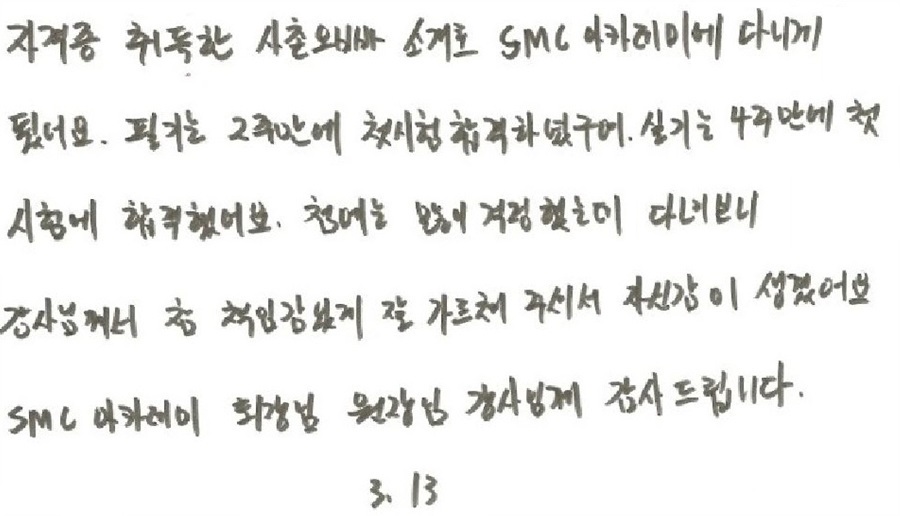 자격증 취득한 사촌오빠 소개로 SMC 아카데미에 다니게
됬어요. 필기는 2주만에 첫시험 합격하였구여. 실기는 4주만에 첫
시험에 합격했어요. 첨에는 많이 걱정했는데 다녀보니
강사님께서 참 책임감있게 잘 가르쳐 주셔서 자신감이 생겼어요
SMC 아카데미 회장님 원장님 강사님께 감사드립니다.
3. 13